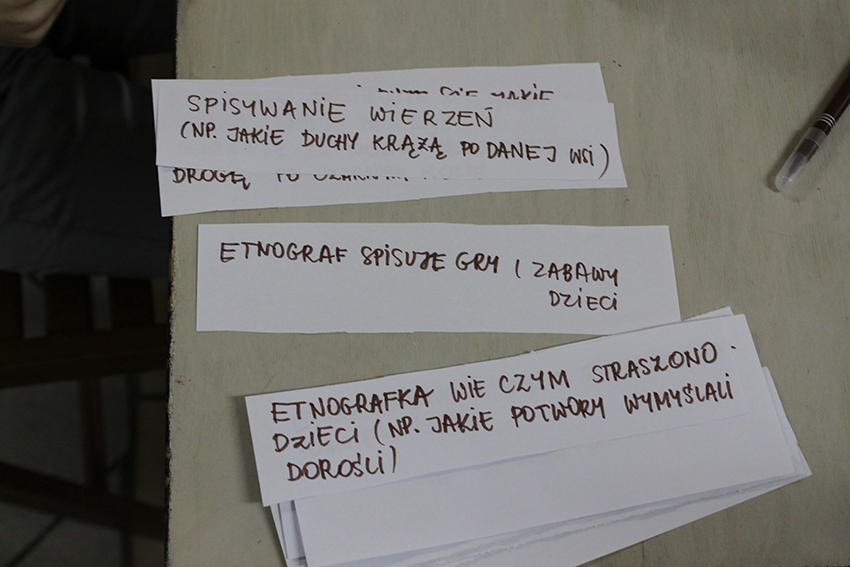 SPISYWANIE WIERZEŃ
(NP. JAKIE DUCHY KRĄŻĄ PO DANEJ WSI)
DROGĘ PO
ETNOGRAF SPISUJE GRY I ZABAWY
DZIECI
ETNOGRAFKA WIE CZYM STRASZONO
DZIECI (NP. JAKIE POTWORY WYMYŚLALI
DOROŚLI)